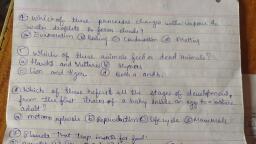 Which of these processes changes water vapour to
water droplets to form clouds?
(a) Evaporation (b) Boiling (c) Condensation (d) Melting
Which of these animals feed on dead animals?
(a) Hawks and Vultures (b) Hyenas
(c) Lion and Tiger (d) Both a and b.
Which of these refers all the stages of development
from the first traits of a baby inside an egg to a mature
adult?
(a) metamorphosis (b) Reproduction (c) Life cycle (d) Mammals
Plants that trap insects for food: